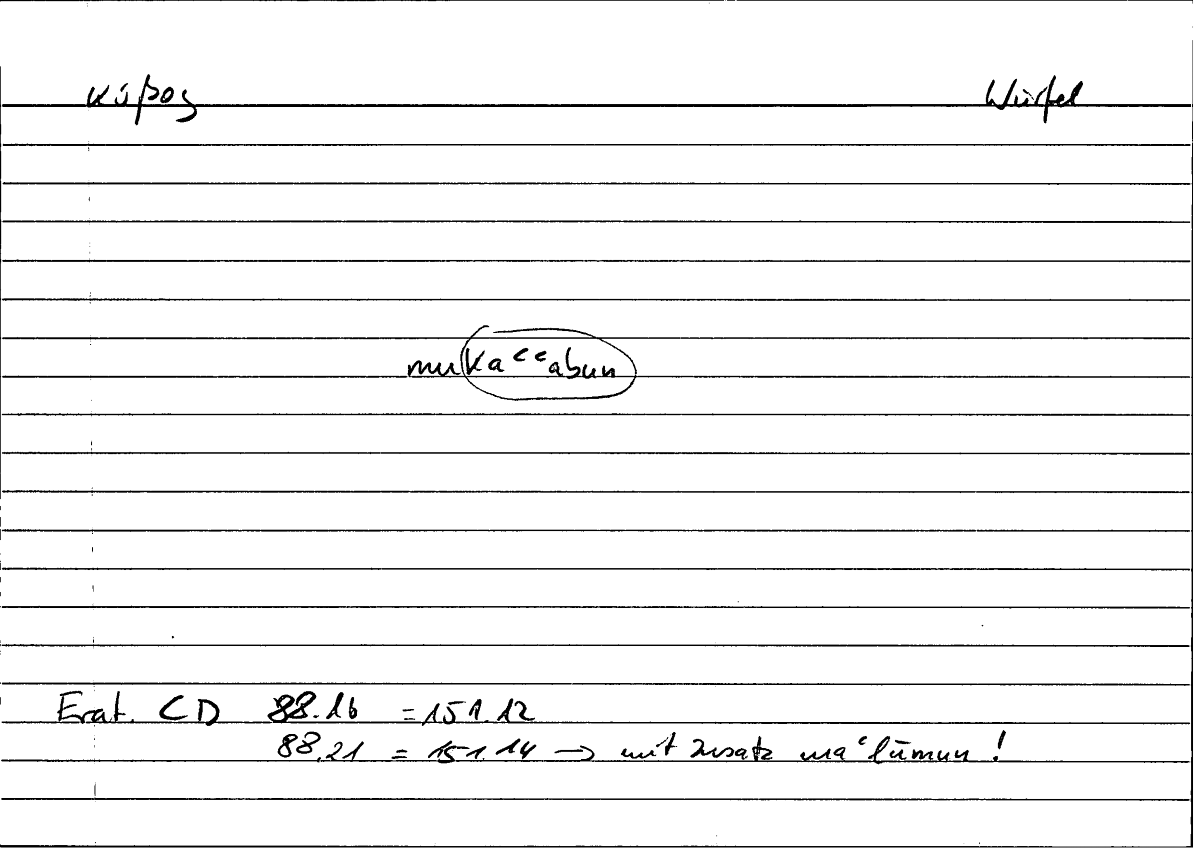 κύβος Würfel
mukaʿʿabun
Erat. CD 88.16 = 151.12
88.21 = 151.14 → mit Zusatz maʿlūmun!